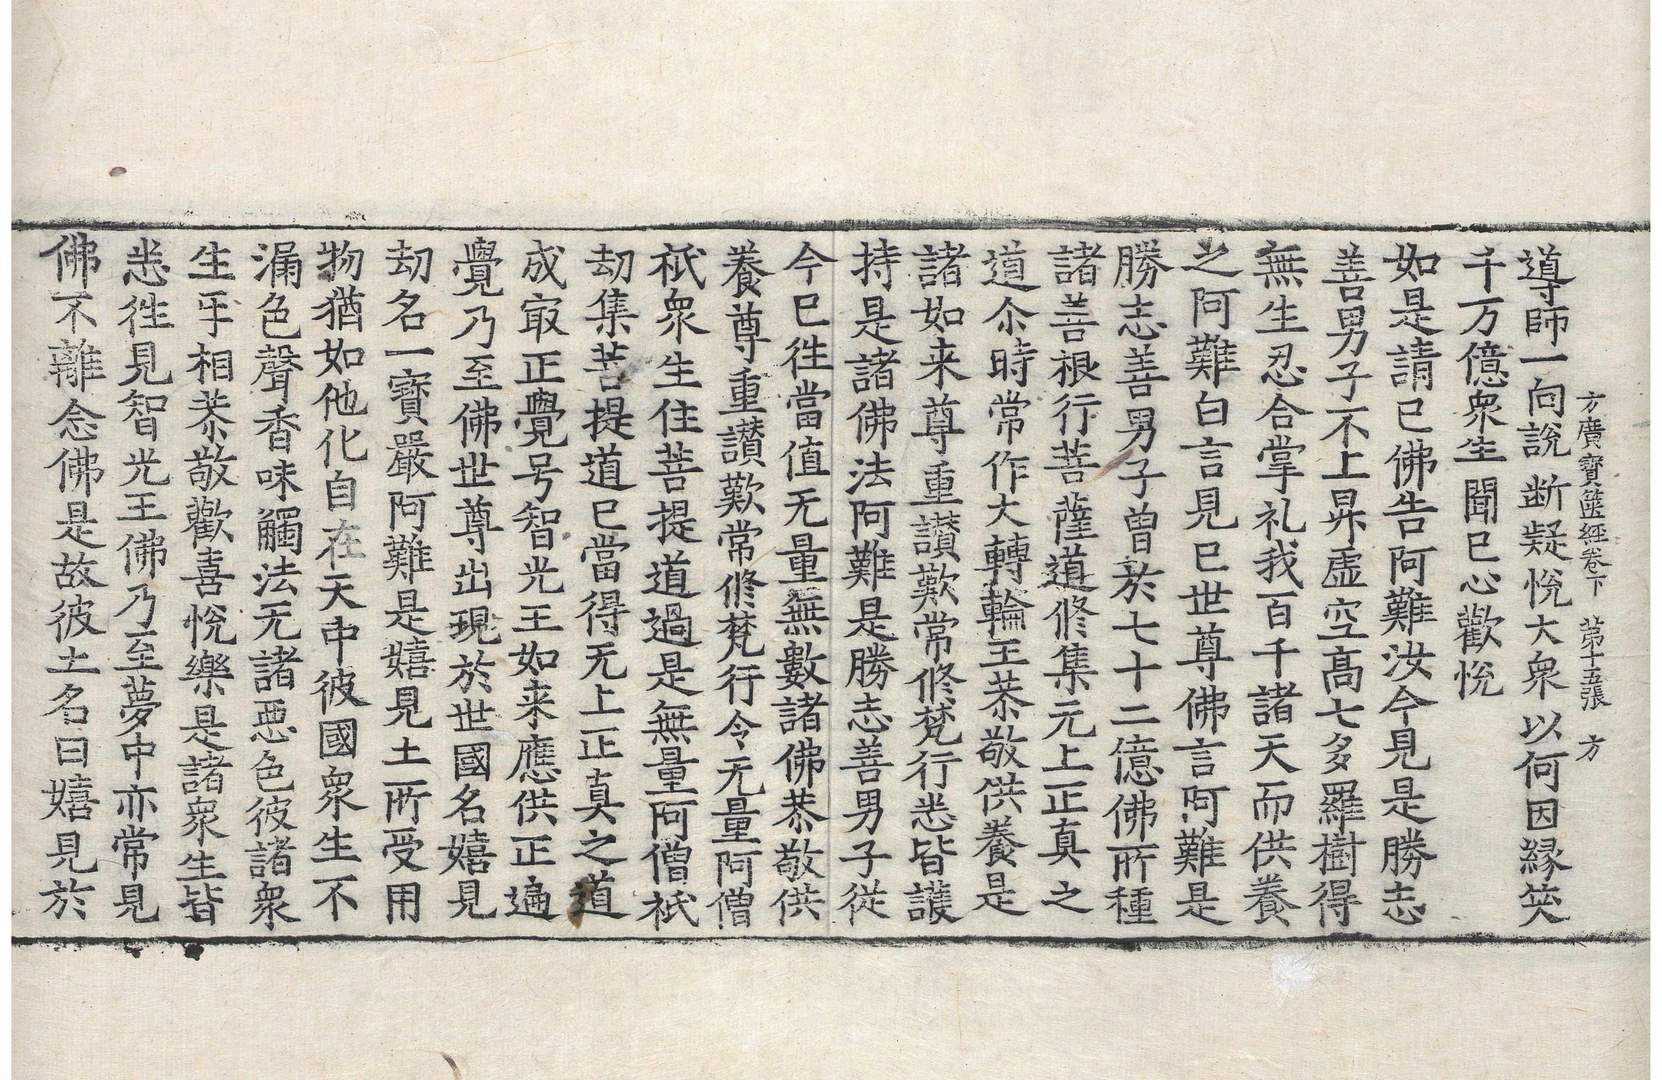 方廣寶篋經卷下 第十五張 方
導師一向說 断疑悅大衆 以何因緣笑
千万億衆生 聞已心歡悅
如是請已佛告阿難汝今見是勝志
善男子不上昇虛空高七多羅樹得
無生忍合掌礼我百千諸天而供養
之阿難白言見已世尊佛言阿難是
勝志善男子曾於七十二億佛所種
諸善根行菩薩道修集元上正真之
道尒時常作大轉輪王恭敬供養是
諸如来尊重讃歎常修梵行悉皆護
持是諸佛法阿難是勝志善男子從
今已往當值无量無數諸佛恭敬供
養尊重讃歎常修梵行令无量阿僧
祇衆生住菩提道過是無量阿僧祇
劫集菩提道已當得无上正真之道
成㝡正覺号智光王如来應供正遍
覺乃至佛世尊出現於世國名嬉見
劫名一寶嚴阿難是嬉見土所受用
物猶如他化自在天中彼國衆生不
漏色聲香味觸法无諸惡色彼諸衆
生㸦相恭敬歡喜悅樂是諸衆生皆
悉往見智光王佛乃至夢中亦常見
佛不離念佛是故彼土名曰嬉見於